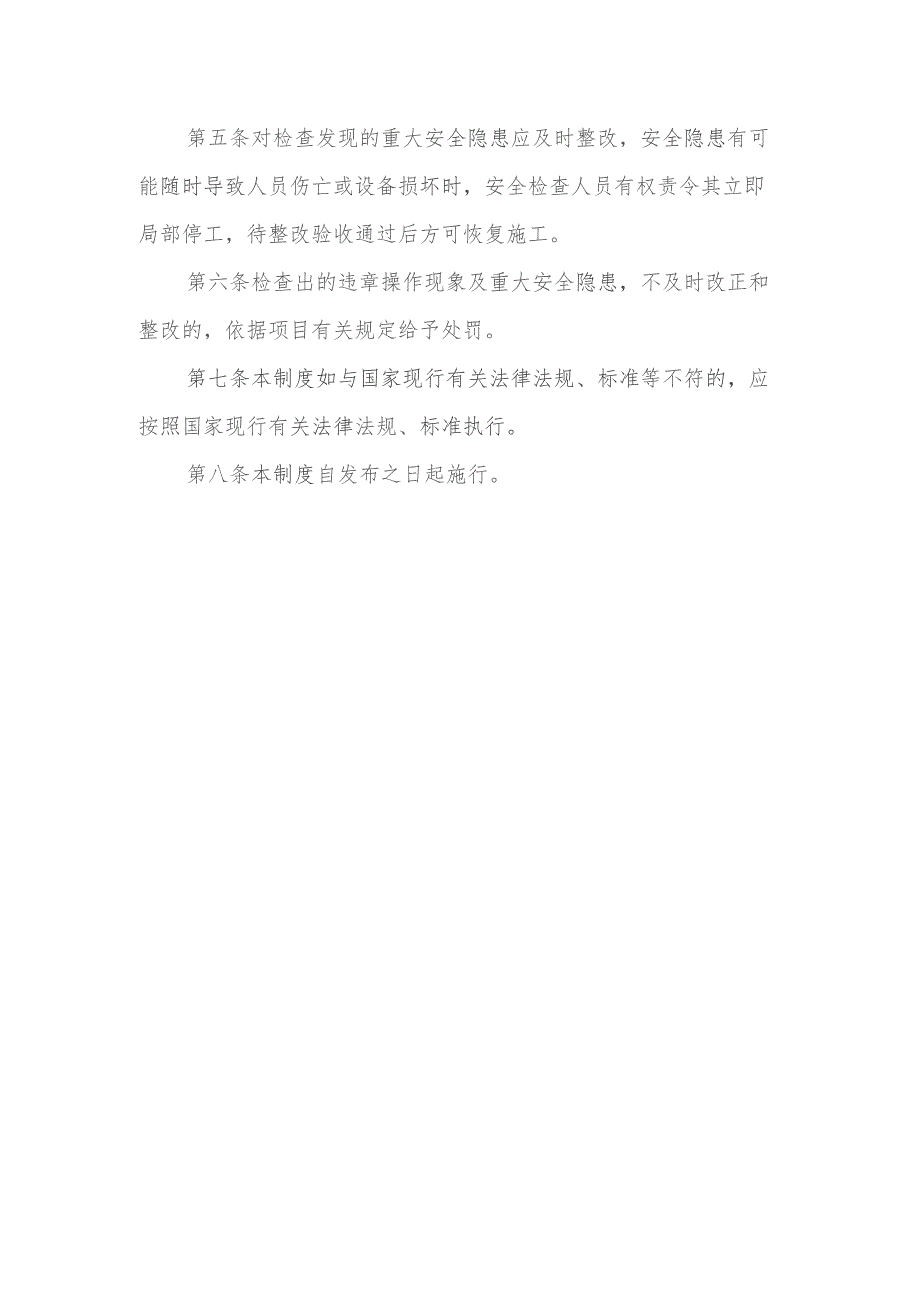 第五条对检查发现的重大安全隐患应及时整改，安全隐患有可
能随时导致人员伤亡或设备损坏时，安全检查人员有权责令其立即
局部停工，待整改验收通过后方可恢复施工。
第六条检查出的违章操作现象及重大安全隐患，不及时改正和
整改的，依据项目有关规定给予处罚。
第七条本制度如与国家现行有关法律法规、标准等不符的，应
按照国家现行有关法律法规、标准执行。
第八条本制度自发布之日起施行。